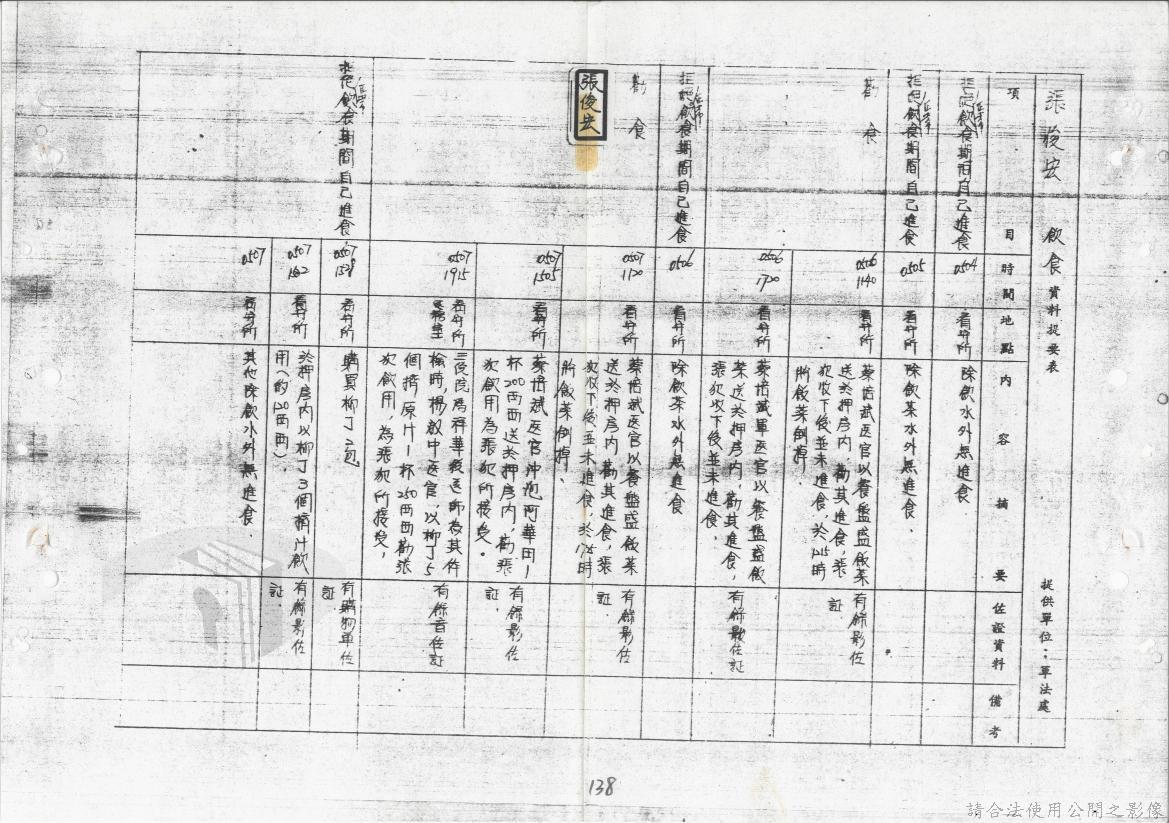 張俊宏 飲食資料提要表 提供單位：軍法處
項目 時間 地點 內容摘要 佐證資料 備考
拒絕飲食期間自己進食 0504 看守所 除飲水外無進食.
拒絕飲食期間自己進食 0505 看守所 除飲茶水外無進食.
勸食
0506 1140 看守所
蔡培斌医官以餐盤盛飯菜
送於押房內,勸其進食,張
犯收下後並未進食,於1215時
將飯菜倒掉
有錄影佐
証
0506 1720 看守所
蔡培斌軍医官以餐盤盛飯
菜送於押房內,勸其進食,
張犯收下後並未進食.
有錄影佐証
拒絕飲食期間自己進食 0506 看守所 除飲茶水外無進食
勸食
張俊宏
0507 1120 看守所
蔡培斌医官以餐盤盛飯菜
送於押房內,勸其進食,張
犯收下後並未進食,於
將飯菜倒掉、
有錄影佐
証
0507 1505 看守所
蔡培斌医官沖泡阿華田1
杯200西西送於押房內,勸張
犯飲用為張犯所接受。
有錄影佐
証.
0507 1915 看守所
檢時,楊 中医官,以柳丁5
個擠原汁1杯250西西勸張
犯飲用,為張犯所接受,
有錄音佐証
拒絕飲食期間自己進食
0507 看守所
購買柳丁
有購物單佐
証
0507 看守所
於押房內以柳丁3個擠汁飲
用(約120西西).
有錄影佐
証.
0507 看守所
其他除飲水外無進食.
138
請合法使用公開之影像